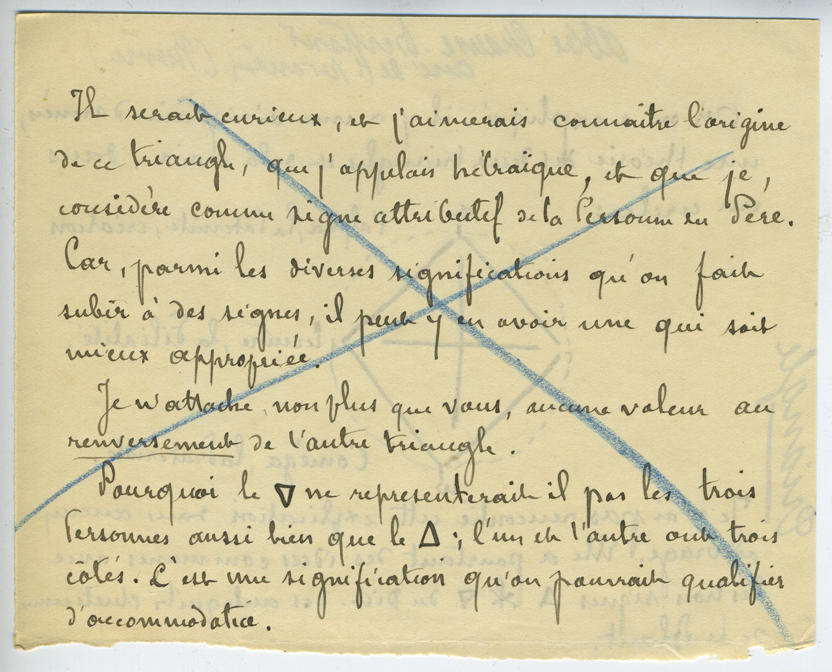 Il serait curieux, et j'aimerais connaitre l'origine
de ce triangle, que j'appelais hébraïque, et que je,
considère comme signe attributif de la Personne du Père.
Car, parmi les diverses significations qu'on fait
subir à des signes, il peut y en avoir une qui soit
mieux appropriée.
Je n'attache, non plus que vous, aucune valeur au
renversement de l'autre triangle.
Pourquoi le ▽ ne representerait il pas les trois
Personnes aussi bien que le Δ ; l'un et l'autre ont trois
côtés. C'est une signification qu'on pourrait qualifier
d'accommodatice.